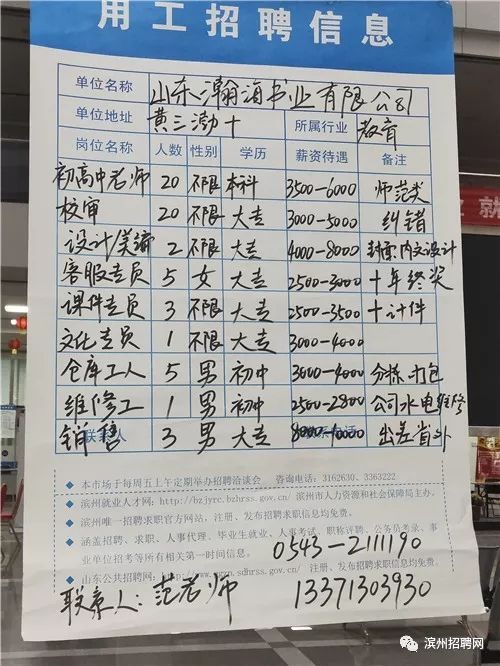 用工招聘信息
单位名称 山东瀚海书业有限公司
单位地址 黄三渤十 所属行业 教育
岗位名称 人数 性别 学历 薪资待遇 备注
初高中老师 20 不限 本科 3500-6000 师范类
校审 20 不限 大专 3000-5000 纠错
设计/美编 2 不限 大专 4000-8000 封面·内文设计
客服专员 5 女 大专 2500-3000 十年终奖
课件专员 3 不限 大专 2500-3500 十计件
文化专员 1 不限 大专 3000-4000
仓库工人 5 男 初中 3000-4000 分拣·打包
维修工 1 男 初中 2500-2800 公司水电维修
销售 3 男 大专 8000-10000 出差省外
联系人
◆ 本市场于每周五上午定期举办招聘洽谈会 咨询电话:3162630、3363222
◆ 滨州就业人才网:http://bzjyrc.bzhrss.gov.cn/ 滨州市人力资源和社会保障局主办。
◆ 滨州唯一招聘求职官方网站,注册、发布招聘求职信息均免费。
◆ 涵盖招聘、求职、人事代理、毕业生就业、人事考试、职称评聘、公务员考录、事
业单位招考等所有相关第一时间信息。
0543-2111190
◆ 山东公共招聘网:sdhrss.gov.cn/ 注册、发布招聘求职信息均免费。
联系人:范老师 13371303930
滨州招聘网